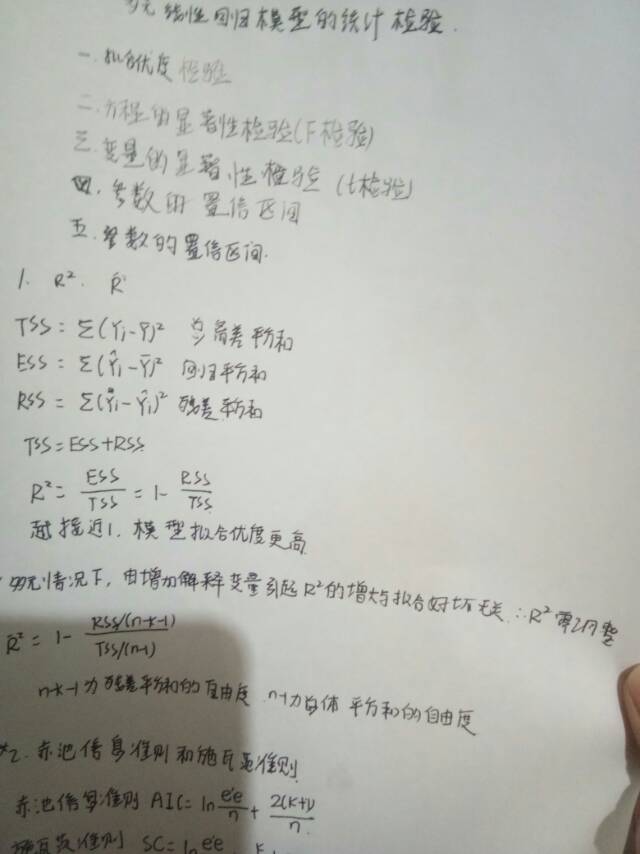 多元线性回归模型的统计检验.
一.拟合优度检验
二.方程的显著性检验(F检验)
三.变量的显著性检验(t检验)
四.参数的置信区间
五.参数的置信区间.
1. R². R̄
TSS = Σ(Yi-Ȳ)² 总离差平方和
ESS = Σ(Ŷi-Ȳ)² 回归平方和
RSS = Σ(Yi-Ŷi)² 残差平方和
TSS=ESS+RSS.
R²= ESS/TSS = 1- RSS/TSS
越接近1.模型拟合优度更高.
多元情况下,由增加解释变量引起R²的增大与拟合好坏无关.∴R²需调整
R̄² = 1- RSS/(n-k-1) / TSS/(n-1)
n-k-1为残差平方和的自由度.n-1为总体平方和的自由度
*2.赤池信息准则和施瓦茨准则.
赤池信息准则 AIC=ln e'e/n + 2(k+1)/n
施瓦茨准则 SC=ln e'e